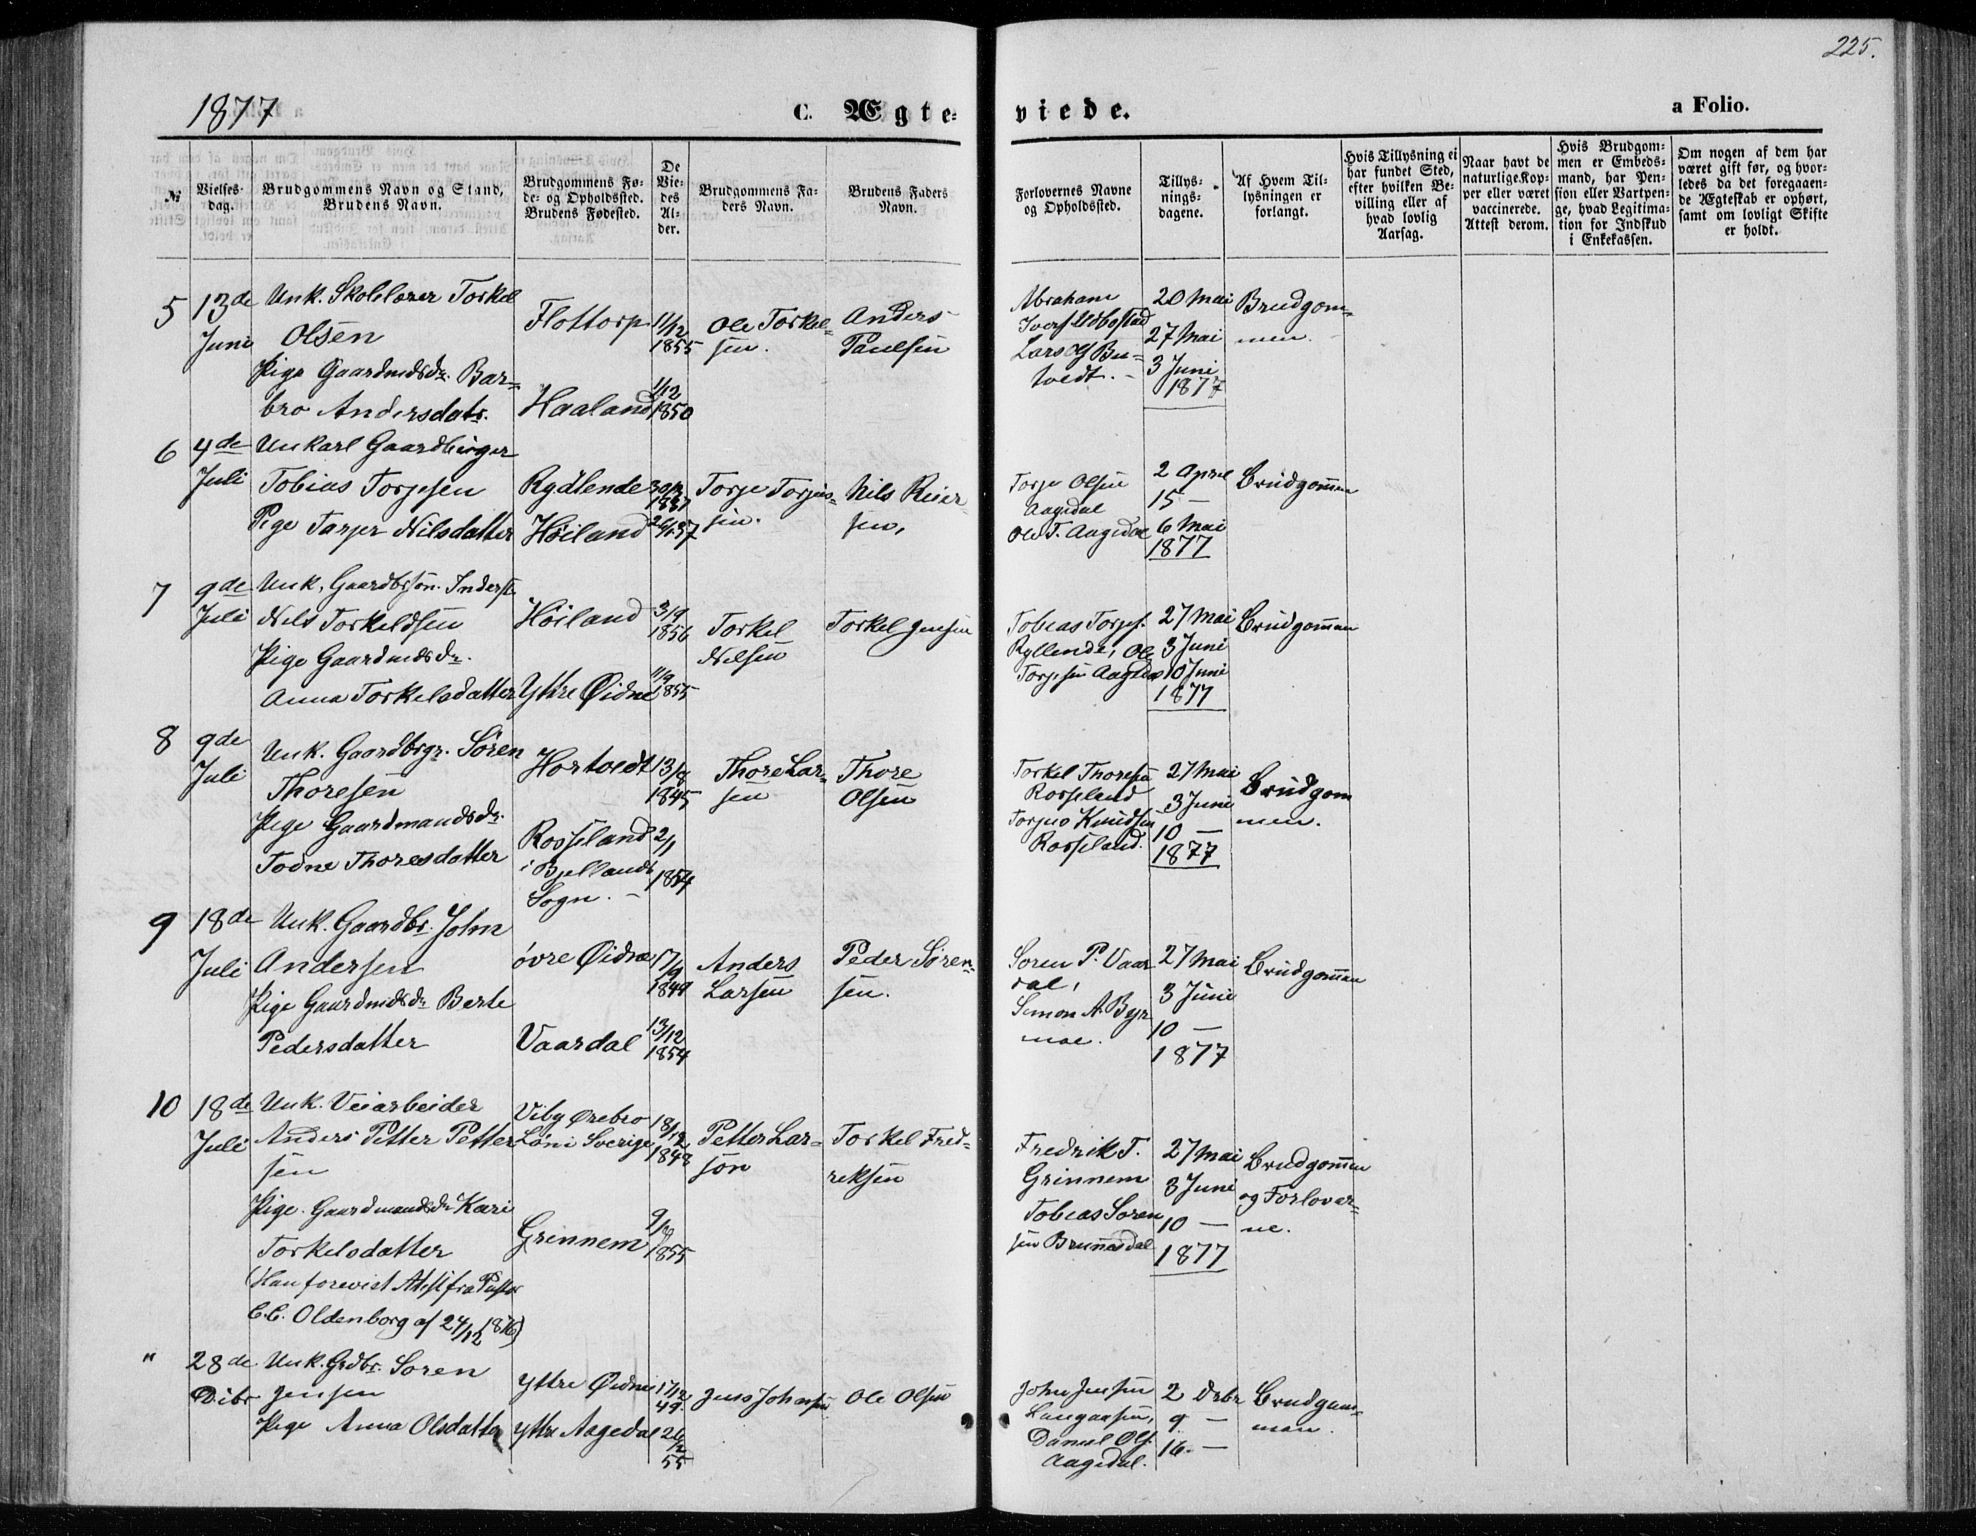 225.
1877
C. Ægte-
viede.
a Folio.
№
Vielses-
dag.
Brudgommens Navn og Stand,
Brudens Navn.
Brudgommens Fø-
de- og Opholdsted.
Brudens Fødested.
De
Vie-
des
Al-
der.
Brudgommens Fa-
ders Navn.
Brudens Faders
Navn.
Forlovernes Navne
og Opholdssted.
Tillys-
nings-
dagene.
Af Hvem Til-
lysningen er
forlangt.
Hvis Tillysning ei
har fundet Sted,
efter hvilken Be-
villing eller af
hvad lovlig
Aarsag.
Naar havt de
naturlige Kop-
per eller været
vaccinerede.
Attest derom.
Hvis Brudgom-
men er Embeds-
mand, har Pen-
sion eller Vartpen-
ge, hvad Legitima-
tion for Indskud
i Enkekassen.
Om nogen af dem har
været gift før, og hvor-
ledes da det foregaaen-
de Ægteskab er ophørt,
samt om lovligt Skifte
er holdt.
5
13de
Juni
Unk. Skolelærer Torkel
Olsen
Pige Gaardmdsdr. Bar-
bro Andersdatr.
Flottorp
Haaland
11/12
1855
1/12
1850
Ole Torkel-
sen.
Anders
Paulsen
Abraham
Lars Ols Bu-
tvedt.
20 Mai
27 Mai
3 Juni
1877
Brudgom-
men.
6
4de
Juli
Unkarl Gaardbruger
Tobias Torjesen
Pige Tarjer Nilsdatter
Rydlende
Høiland
Torje Torjus-
sen.
Nils Reier-
sen,
Torje Olsen
Aagedal
Ole T. Aagedal
2 April
15 —
6 Mai
1877
Brudgommen
7
9de
Juli
Unk. Gaardbrsøn. Inderst
Nils Torkeldsen
Pige Gaardmdsdr.
Anna Torkelsdatter
Høiland
Yttre Øidne
3/9
1856
11/9
1855
Torkel
Nilsen
Torkel Jensen
Tobias Torjes.
Ryllende, Ole
Torjesen Aagedal
27 Mai
3 Juni
10 Juni
1877
Brudgommen
8
9de
Juli
Unk. Gaardbrgr. Søren
Thoresen
Pige Gaardmandsdr.
Todne Thoresdatter
Hortvedt
Rosseland
i Bjellands
Sogn.
13/8
1845
2/1
1854
Thore Lar-
sen
Thore
Olsen
Torkel Thoresen
Rosseland
Torjus Knudsen
Rosseland.
27 Mai
3 Juni
10 —
1877
Brudgom
men.
9
18de
Juli
Unk. Gaardbr. John
Andersen
Pige Gaardmdsdr Berte
Pedersdatter
øvre Øidne
Vaardal
17/9
1849
13/12
1854
Anders
Larsen
Peder Søren-
sen.
Søren P. Vaar
dal,
Simon A. Byr
moe.
27 Mai
3 Juni
10 —
1877
Brudgommen
10
18de
Juli
Unk. Veiarbeider
Anders Petter Petter
sen
Pige. Gaardmandsdr Kari
Torkelsdatter
(Han forevist Attest fra Pastor
C.C. Oldenborg af 24/12 1876)
Viby Ørebro
Läni Sverige
Grinnem
18/12
1848
1855
Petter Lar-
son
Torkel Fred-
reksen
Fredrik T.
Grinnem
Tobias Soren
sen Brunesdal
27 Mai
3 Juni
10 —
1877
Brudgommen
og Forlover-
ne.
"
28de
Dcbr
Unk. Grdbr. Søren
Jensen
Pige Anna Olsdatter
Yttre Øidne
Yttre Aagedal
17/12
49
26/2
55
Jens Johnsen
Ole Olsen
John Jensen
Daniel Ols.
Aagedal.
2 Dcbr
9 —
16 —
Brudgom-
men.